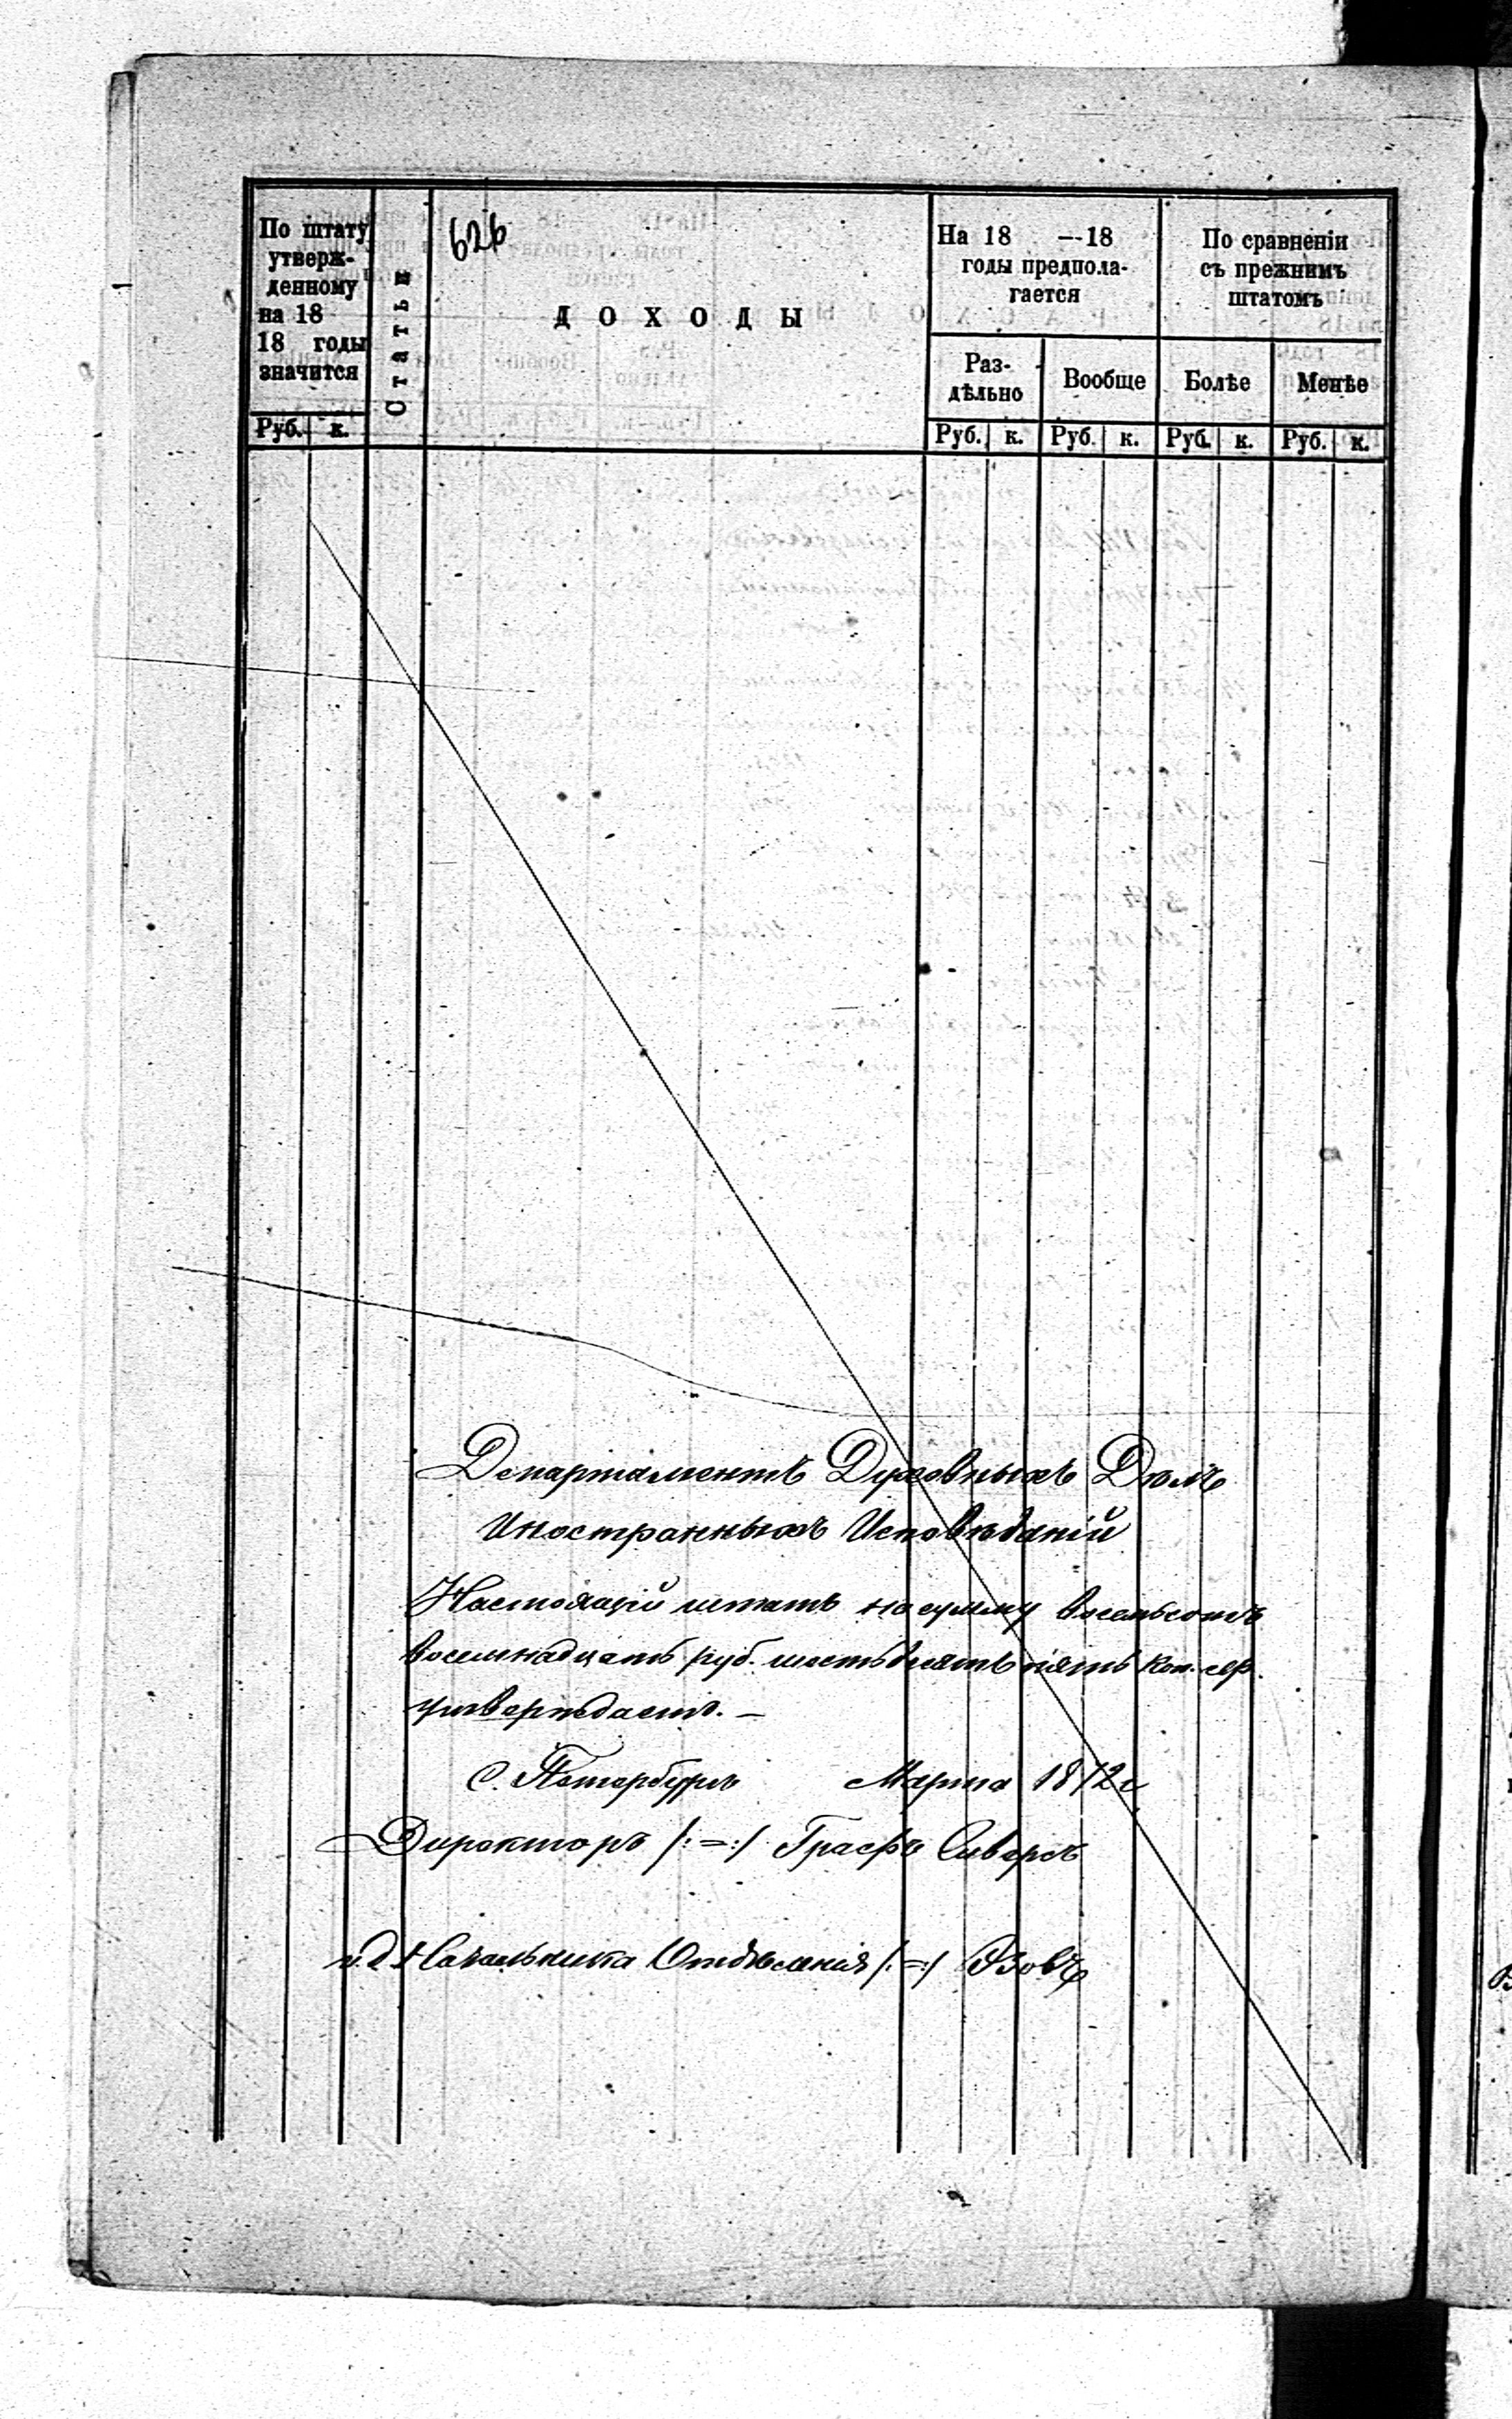 По штату
утверж-
денному
на 18
18 годы
значится
Руб. к.
Статьи
626
ДОХОДЫ
На 18 —18
годы предпола-
гается
Раз-
дѣльно
Вообще
Руб. к. Руб. к.
По сравненіи
съ прежнимъ
штатомъ
Болѣе
Менѣе
Руб. к. Руб. к.
Департаментъ Духовныхъ Дѣлъ
Иностранныхъ Исповѣданій
Настоящій штатъ на сумму восемьсотъ
восемнадцать руб. шестьдесятъ пять коп. сер.
утверждаетъ. —
С. Петербургъ Марта 1872 г
Директоръ /:=:/ Графъ Сиверсъ
и. д. Начальника Отдѣленія /:=:/